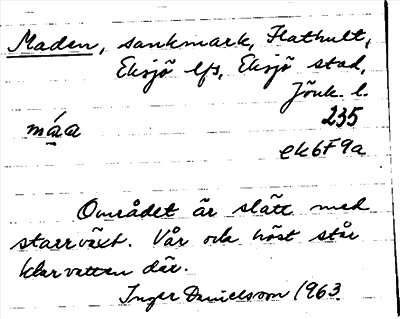 Maden, sankmark, Hathult,
Eksjö lfs, Eksjö stad,
Jönk. l.
máa 235
ek6F9a
Området är slätt med
starrväxt. Vår och höst står
klarvatten där.
Inger Danielsson 1963